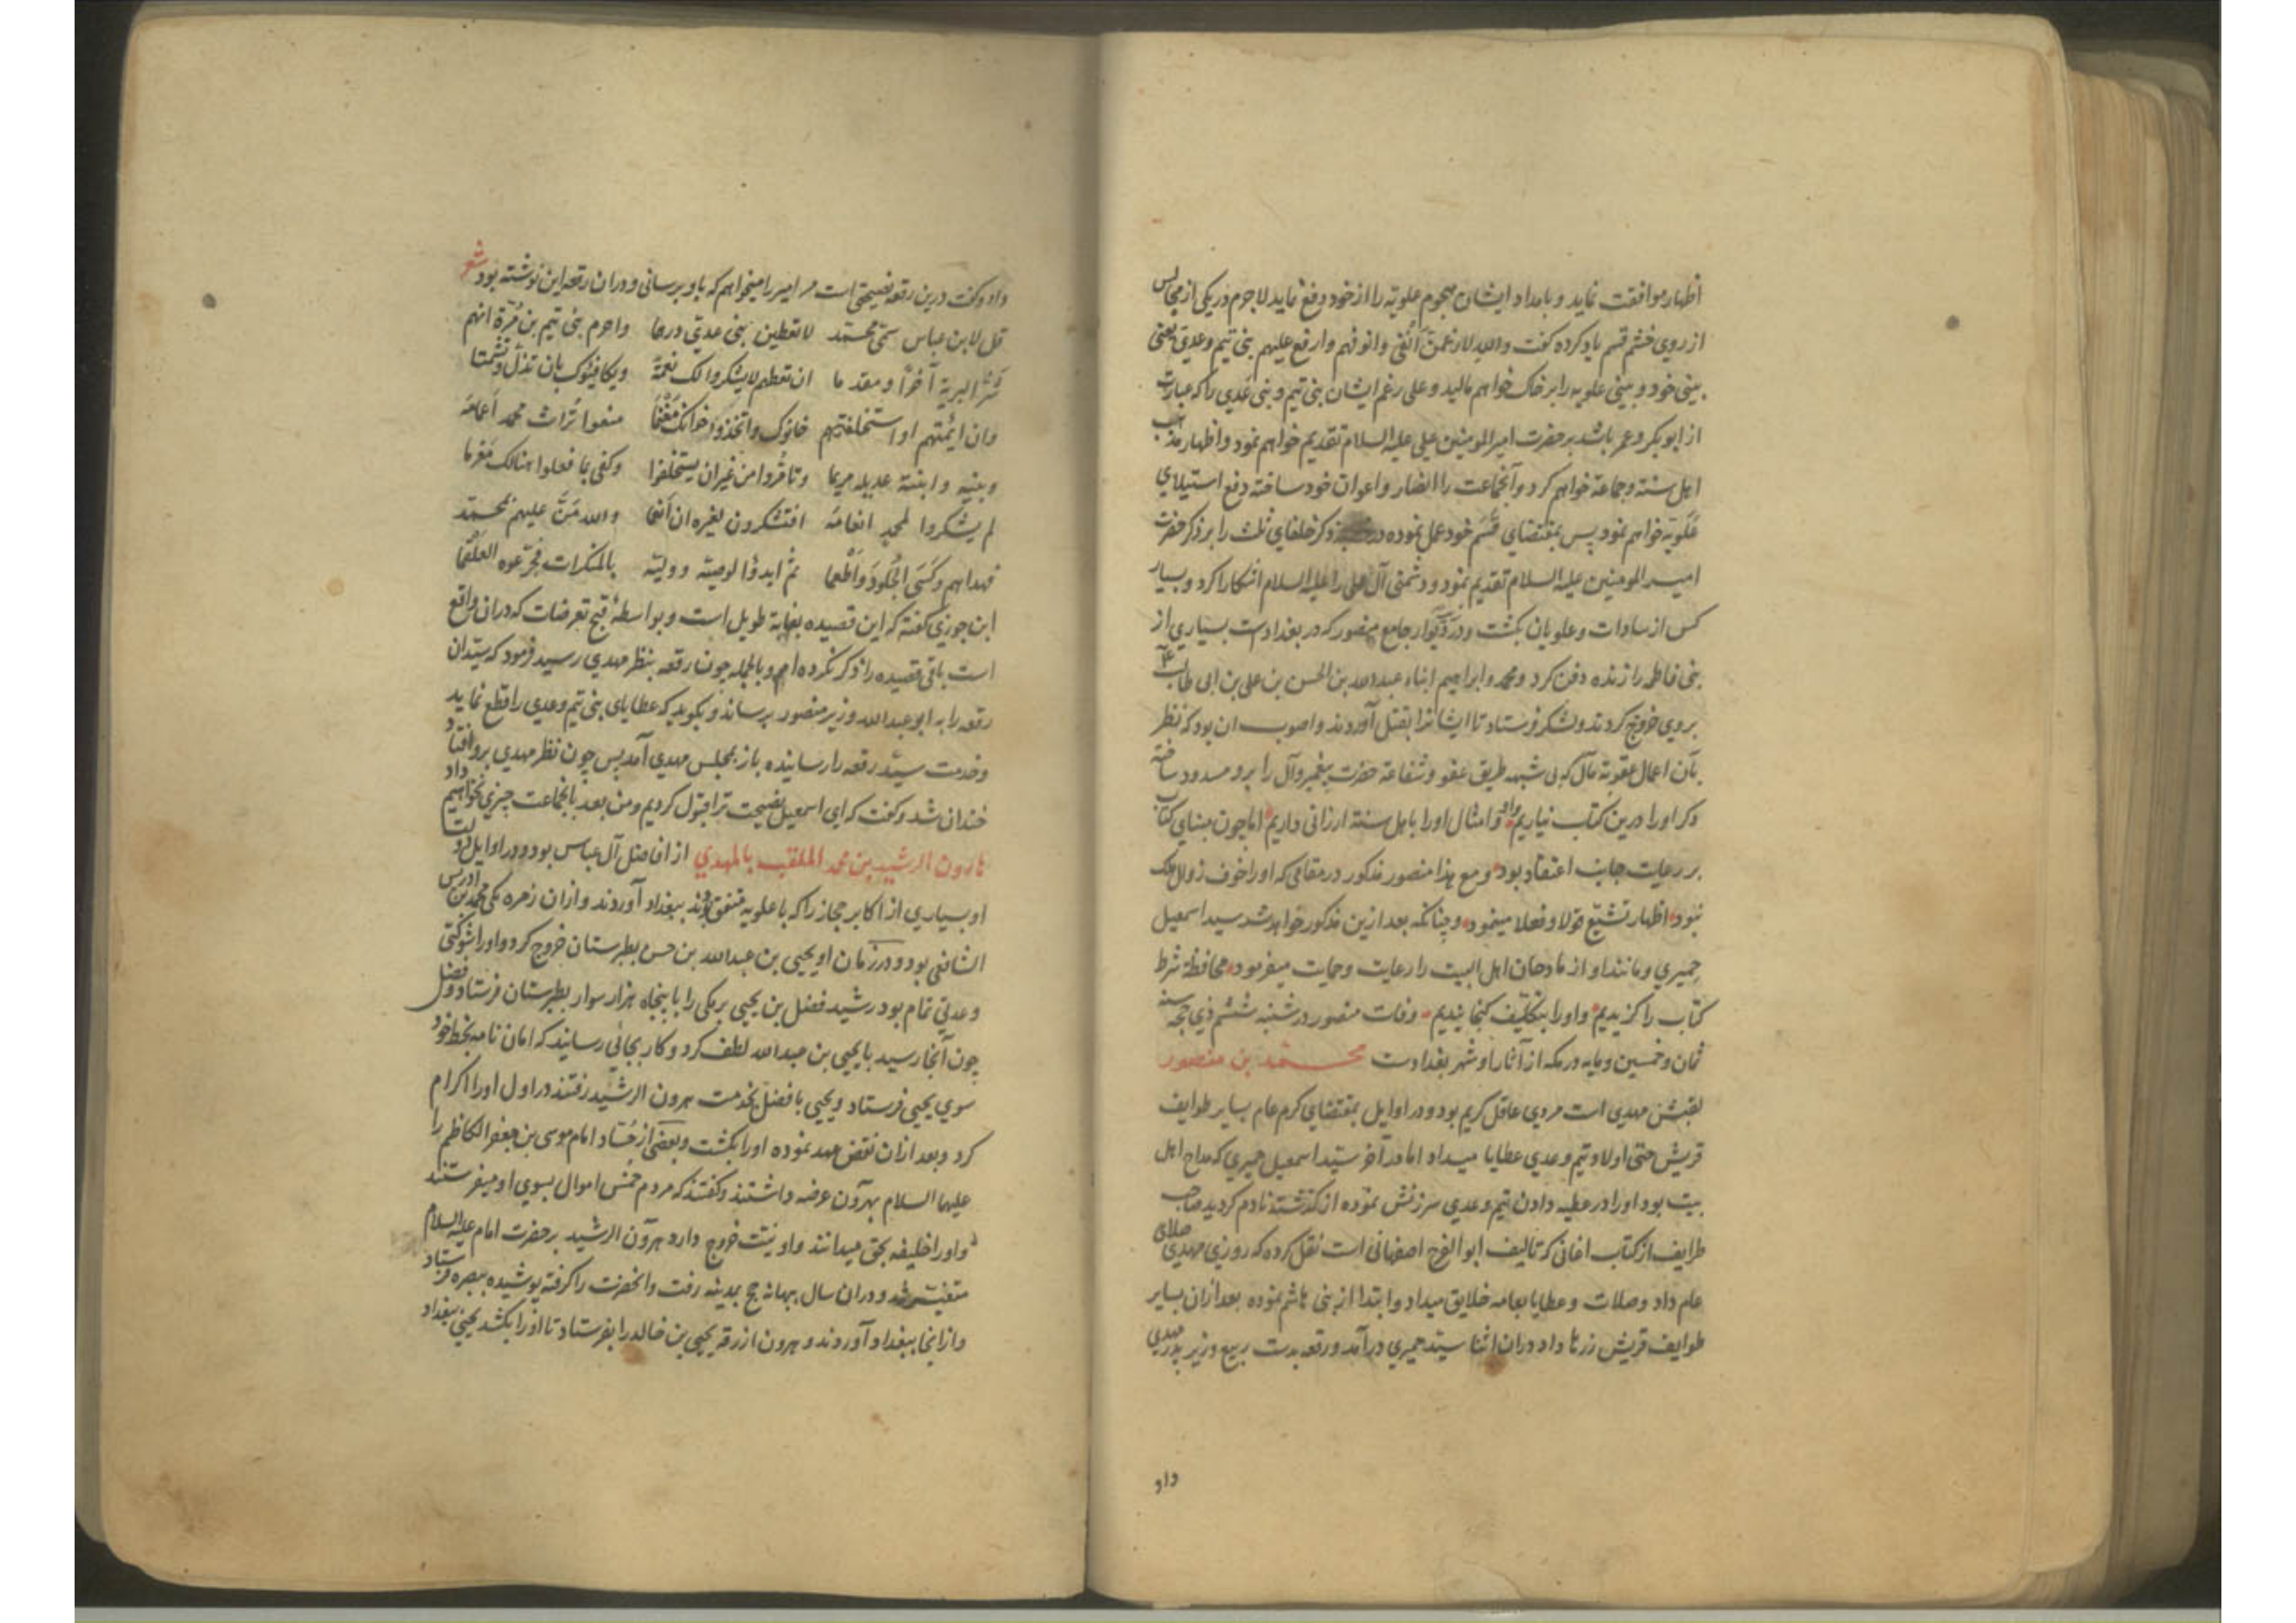 اظهار موافقت نماید و بامداد ایشان هجوم علویه را از خود دفع نماید لاجرم در یکی از مجالس
از روی خشم قسم یاد کرده گفت والله لارغمن انفی وانوفهم وارفع علیهم بنی تیم وعدی یعنی
بینی خود و بینی علویه را بر خاک خواهم مالید و علی رغم ایشان بنی تیم و بنی عدی را که عبارت
از ابوبکر و عمر باشد بر حضرت امیر المومنین علی علیه السلام تقدیم خواهم نمود و اظهار مذهب
اهل سنة و جماعة خواهم کرد و آنجماعت را انصار و اعوان خود ساخته دفع استیلای
علویه خواهم نمود پس بمقتضای قسم خود عمل نموده در ذکر خلفای ثلث را بر ذکر حضرت
امیر المومنین علیه السلام تقدیم نمود و دشمنی آل علی را علیه السلام آشکارا کرد و بسیار
کس از سادات و علویان بکشت و در دیوار جامع منصور که در بغدادست بسیاری از
بنی فاطمه را زنده دفن کرد و محمد و ابراهیم ابناء عبدالله بن الحسن بن علی بن ابی طالب
بروی خروج کردند و لشکر فرستاد تا ایشانرا بقتل آوردند و اصوب ان بود که نظر
بآن اعمال عقوبة مآل که بی شبهه طریق عفو و شفاعة حضرت پیغمبر و آل را برو مسدود ساخته
ذکر او را درین کتاب نیاریم و او و امثال او را باهل سنة ارزانی داریم اما چون بنای کتاب
بر رعایت جانب اعتقاد بود و مع هذا منصور مذکور در مقامی که او را خوف زوال ملک
نبود اظهار تشیع قولا و فعلا مینمود و چنانکه بعد ازین مذکور خواهد شد سید اسمعیل
حمیری و مانند او از مادحان اهل البیت را رعایت و حمایت میفرمود محافظة شرط
کتاب را گزیدیم و او را بتکلیف گنجانیدیم وفات منصور در شنبه ششم ذی حجه سنه
ثمان و خمسین و مایه در مکه از آثار او شهر بغدادست محمد بن منصور
لقبش مهدی است مردی عاقل کریم بود و در اوایل بمقتضای کرم عام بسایر طوایف
قریش حتی اولاد تیم و عدی عطایا میداد اما در آخر سید اسمعیل حمیری که مداح اهل
بیت بود او را در عطیه دادن تیم و عدی سرزنش نموده از گذشته نادم گردید صاحب
طرایف از کتاب اغانی که تالیف ابوالفرج اصفهانی است نقل کرده که روزی مهدی صلای
عام داد و صلات و عطایا بعامه خلایق میداد و ابتدا از بنی هاشم نموده بعد ازان بسایر
طوایف قریش زرها داد دران اثنا سید حمیری درآمد و رقعه بدست ربیع وزیر پدر مهدی
داد
داد و گفت درین رقعه نصیحتی است مر امیر را میخواهم که باو برسانی و دران رقعه این نوشته بود شعر
قل لابن عباس سمی محمد لاتعطین بنی عدی درهما واحرم بنی تیم بن مرة انهم
شر البریة آخرا ومقدما ان تعطهم لایشکروا لک نعمة ویکافئوک بان تذل وتشتما
وان ائتمنتهم او استخلفتهم خانوک واتخذوا خوانک مغنما منعوا تراث محمد اعمامه
وبنیه وابنته عدیله مریما وتامروا من غیر ان یستخلفوا وکفی بما فعلوا هنالک مغرما
لم یشکروا لمحمد انعامه افتشکرون لغیره ان انعما والله من علیهم بمحمد
فهداهم وکسی الجلود واطعما ثم ابدؤا لوصیته وولیته بالمنکرات فجرعوه العلقما
ابن جوزی گفته که این قصیده بغایة طویل است و بواسطهٔ قبح تعرضات که دران واقع
است باقی قصیده را ذکر نکرده ام و بالجمله چون رقعه بنظر مهدی رسید فرمود که سید آن
رقعه را به ابو عبدالله وزیر منصور برساند و بگوید که عطایای بنی تیم و عدی را قطع نماید
و خدمت سید رقعه را رسانیده باز بمجلس مهدی آمد پس چون نظر مهدی برو افتاد
خندان شد و گفت که ای اسمعیل نصیحت ترا قبول کردیم و من بعد بآنجماعت چیزی نخواهیم داد
هارون الرشید بن محمد الملقب بالمهدی از افاضل آل عباس بود و در اوایل دولت
او بسیاری از اکابر حجاز را که با علویه متفق بودند ببغداد آوردند و ازان زمره یکی محمد بن ادریس
الشافعی بود و در زمان او یحیی بن عبدالله بن حسن بطبرستان خروج کرد و او را شوکتی
و عدتی تمام بود رشید فضل بن یحیی برمکی را با پنجاه هزار سوار بطبرستان فرستاد و فضل
چون آنجا رسید با یحیی بن عبدالله لطف کرد و کار بجائی رسانید که امان نامه بخط خود
سوی یحیی فرستاد و یحیی با فضل بخدمت هرون الرشید رفتند در اول او را اکرام
کرد و بعد ازان نقض عهد نموده او را بکشت و بعضی از حساد امام موسی بن جعفر الکاظم را
علیهما السلام بهرون عرضه داشتند و گفتند که مردم خمس اموال بسوی او میفرستند
و او را خلیفه بحق میدانند و او نیت خروج دارد هرون الرشید بر حضرت امام علیه السلام
شد و دران سال ببهانه حج بمدینه رفت و آنحضرت را گرفته پوشیده ببصره فرستاد
و از انجا ببغداد آوردند و هرون از رقه یحیی بن خالد را بفرستاد تا او را بکشد یحیی ببغداد